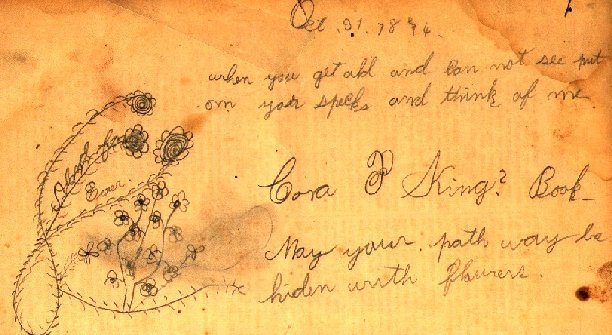 Oct. 31. 18
when you get old and can not see put
on your specks and think of me.
Cora P King? Book
May your path way be
hiden with flowers.
Ever